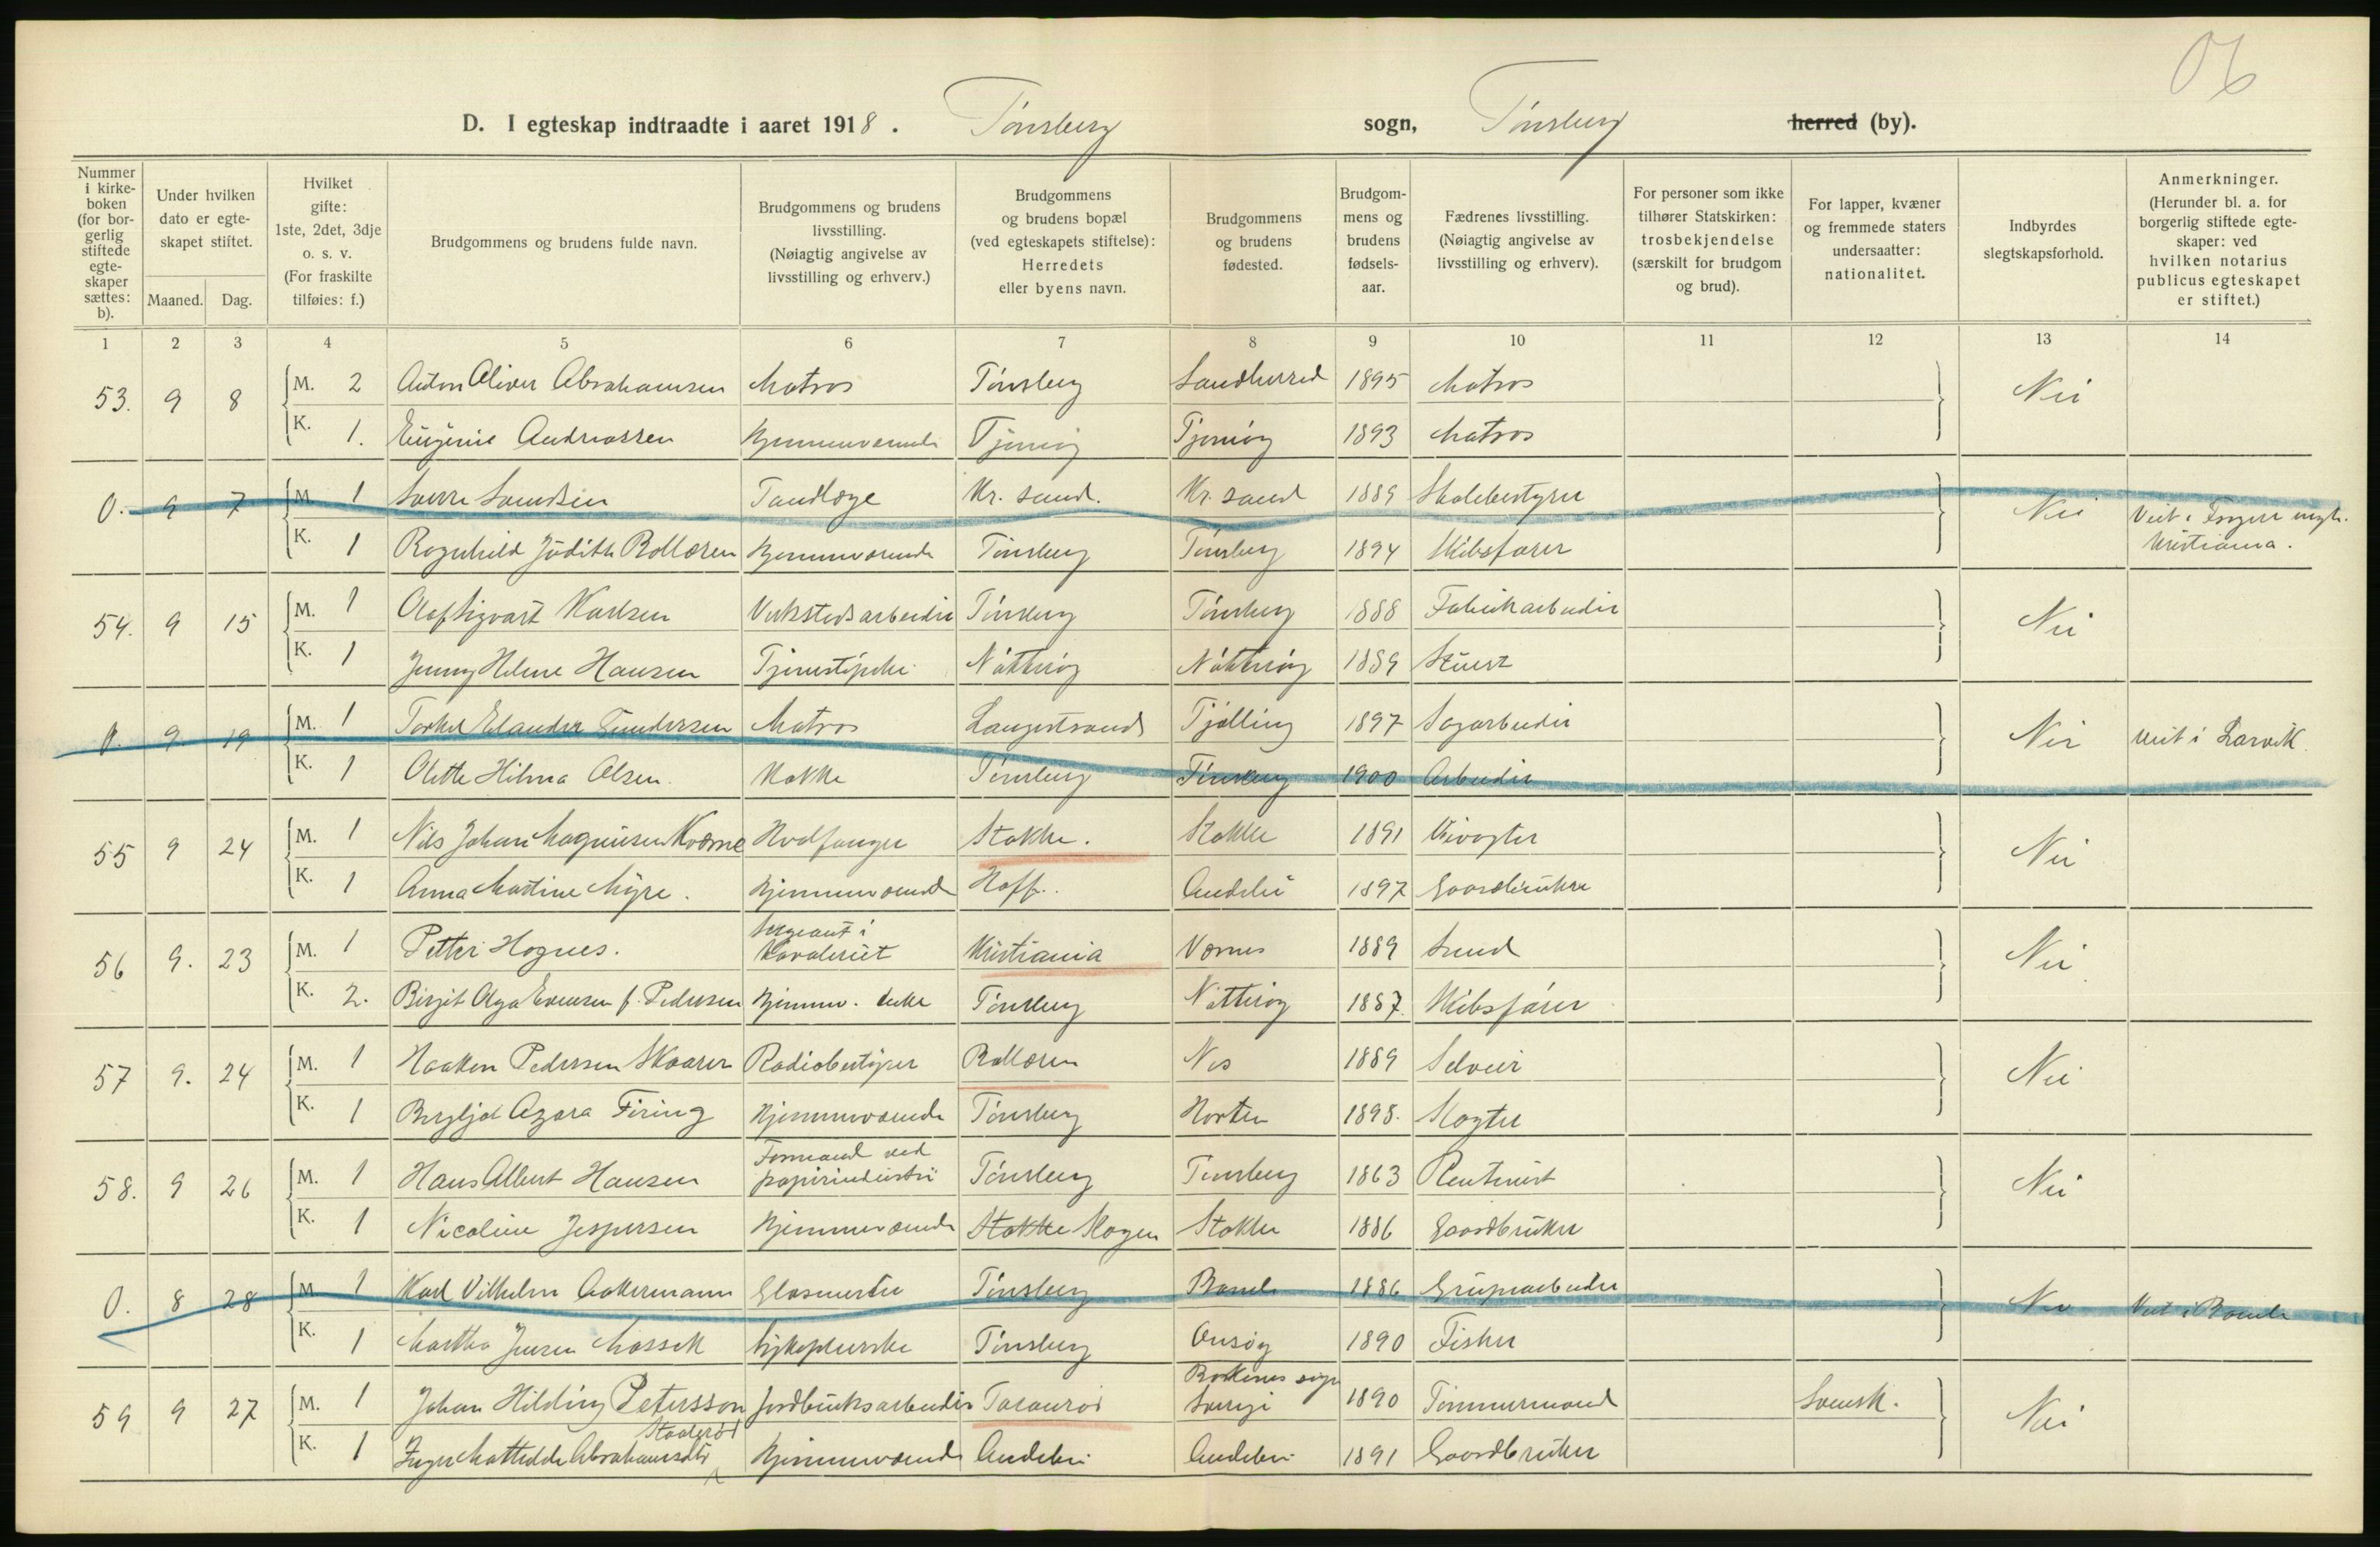 06
D. I egteskap indtraadte i aaret 1918. Tønsberg sogn, Tønsberg herred (by).
Nummer i kirkeboken (for borgerlig stiftede egteskaper sættes: b).
Under hvilken dato er egteskapet stiftet.
Maaned. Dag.
Hvilket gifte: 1ste, 2det, 3dje o. s. v. (For fraskilte tilføies: f.)
Brudgommens og brudens fulde navn.
Brudgommens og brudens livsstilling. (Nøiagtig angivelse av livsstilling og erhverv.)
Brudgommens og brudens bopæl (ved egteskapets stiftelse): Herredets eller byens navn.
Brudgommens og brudens fødested.
Brudgommens og brudens fødselsaar.
Fædrenes livsstilling. (Nøiagtig angivelse av livsstilling og erhverv).
For personer som ikke tilhører Statskirken: trosbekjendelse (særskilt for brudgom og brud).
For lapper, kvæner og fremmede staters undersaatter: nationalitet.
Indbyrdes slegtskapsforhold.
Anmerkninger. (Herunder bl. a. for borgerlig stiftede egteskaper: ved hvilken notarius publicus egteskapet er stiftet.)
1 2 3 4 5 6 7 8 9 10 11 12 13 14
53. 9 8 M. 2 Anton Oliver Abrahamsen Matros Tønsberg Sandherred 1895 Matros Nei
K. 1. Eugenie Andreassen Hjemmeværende Tjømøy Tjømøy 1893 Matros
0. 9 7 M. 1 Sverre Svendsen Tandlæge Kr. sand. Kr. sand 1889 Skolebestyrer Nei Viet i Kristiania.
K. 1 Ragnhild Judith Bollæren Hjemmeværende Tønsberg Tønsberg 1894 Skibsfører
54. 9 15 M. 1 Olaf Sigvart Karlsen Verkstedsarbeider Tønsberg Tønsberg 1888 Fabrikarbeider Nei
K. 1 Jenny Helene Hansen Tjenestepike Nøtterøy Nøtterøy 1889 Stuert
0. 9. 19 M. 1 Torkel Elander Gundersen Matros Langestrand Tjølling 1897 Sagarbeider Nei Viet i Larvik.
K. 1 Olette Hilma Olsen. Kokke Tønsberg Tønsberg 1900 Arbeider
55 9 24 M. 1 Nils Johan Magnusen Kværne Hvalfanger Stokke. Stokke 1891 Nei
K. 1 Anna Martine Myre. Hjemmeværende Hoff. Andebu 1897 Gaardbruker
56 9. 23 M. 1 Petter Hognes. Sergeant i Kavaleriet Kristiania Værnes 1889 Smed Nei
K. 2. Birgit Olga Evensen f. Pedersen Hjemmev. Enke Tønsberg Nøtterøy 1887. Skibsfører
57 9. 24 M. 1 Haakon Pedersen Skaarer Radiobestyrer Bollæren Nes 1889 Selveier Nei
K. 1 Bergljot Agara Firing Hjemmeværende Tønsberg Horten 1898. Vogter
58. 9 26 M. 1 Hans Albert Hansen Formand ved papirindustri Tønsberg Tønsberg 1863 Rentenist Nei
K. 1 Nicoline Jespersen Hjemmeværende Stokke Skogen Stokke 1886 Gaardbruker
0. 8 28 M. 1 Karl Vilhelm Aakermann Glasmester Tønsberg Bamle 1886 Grubearbeider Nei Viet i Bamle
K. 1 Martha Jensen Mossek Sykepleierske Tønsberg Onsøy 1890 Fisker
59 9 27 M. 1 Johan Hilding Petersson Jordbruksarbeider Sverige 1890 Tømmermand Svensk. Nei
K. 1 Inger Mathilde Abrahamsdtr Staalerød Hjemmeværende Andebu Andebu 1891 Gaardbruker